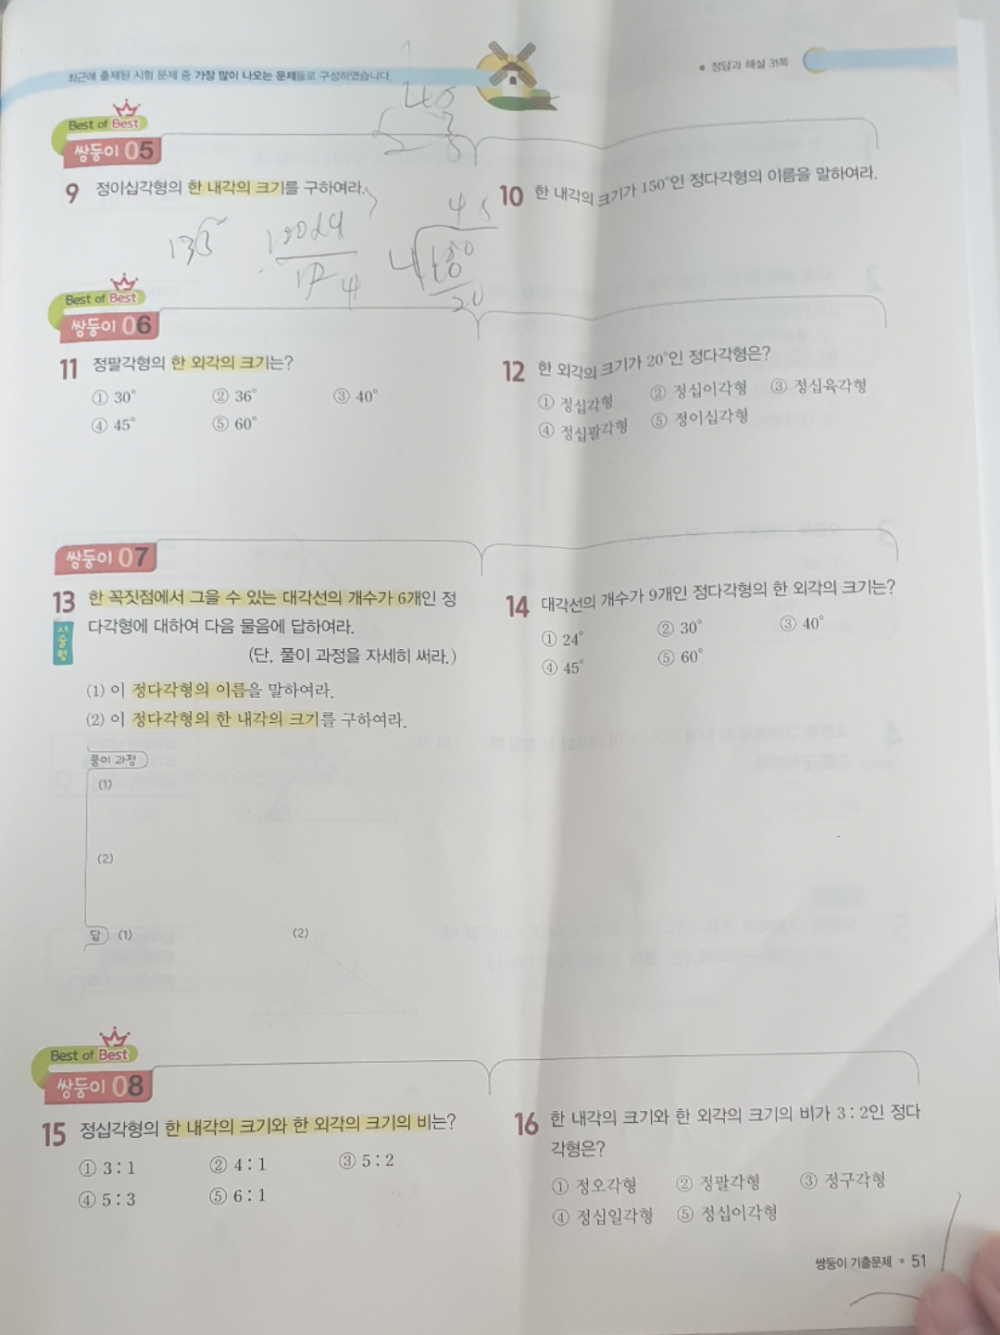 최근에 출제된 시험 문제 중 가장 많이 나오는 문제들로 구성하였습니다.
• 정답과 해설 31쪽
Best of Best
쌍둥이 05
9 정이십각형의 한 내각의 크기를 구하여라.
10 한 내각의 크기가 150°인 정다각형의 이름을 말하여라.
135
45
4
180
20
Best of Best
쌍둥이 06
11 정팔각형의 한 외각의 크기는?
① 30° ② 36° ③ 40°
④ 45° ⑤ 60°
12 한 외각의 크기가 20°인 정다각형은?
① 정십각형 ② 정십이각형 ③ 정십육각형
④ 정십팔각형 ⑤ 정이십각형
쌍둥이 07
13 한 꼭짓점에서 그을 수 있는 대각선의 개수가 6개인 정
서술형
다각형에 대하여 다음 물음에 답하여라.
(단, 풀이 과정을 자세히 써라.)
(1) 이 정다각형의 이름을 말하여라.
(2) 이 정다각형의 한 내각의 크기를 구하여라.
풀이 과정
(1)
(2)
답 (1) (2)
14 대각선의 개수가 9개인 정다각형의 한 외각의 크기는?
① 24° ② 30° ③ 40°
④ 45° ⑤ 60°
Best of Best
쌍둥이 08
15 정십각형의 한 내각의 크기와 한 외각의 크기의 비는?
① 3 : 1 ② 4 : 1 ③ 5 : 2
④ 5 : 3 ⑤ 6 : 1
16 한 내각의 크기와 한 외각의 크기의 비가 3 : 2인 정다
각형은?
① 정오각형 ② 정팔각형 ③ 정구각형
④ 정십일각형 ⑤ 정십이각형
쌍둥이 기출문제 • 51